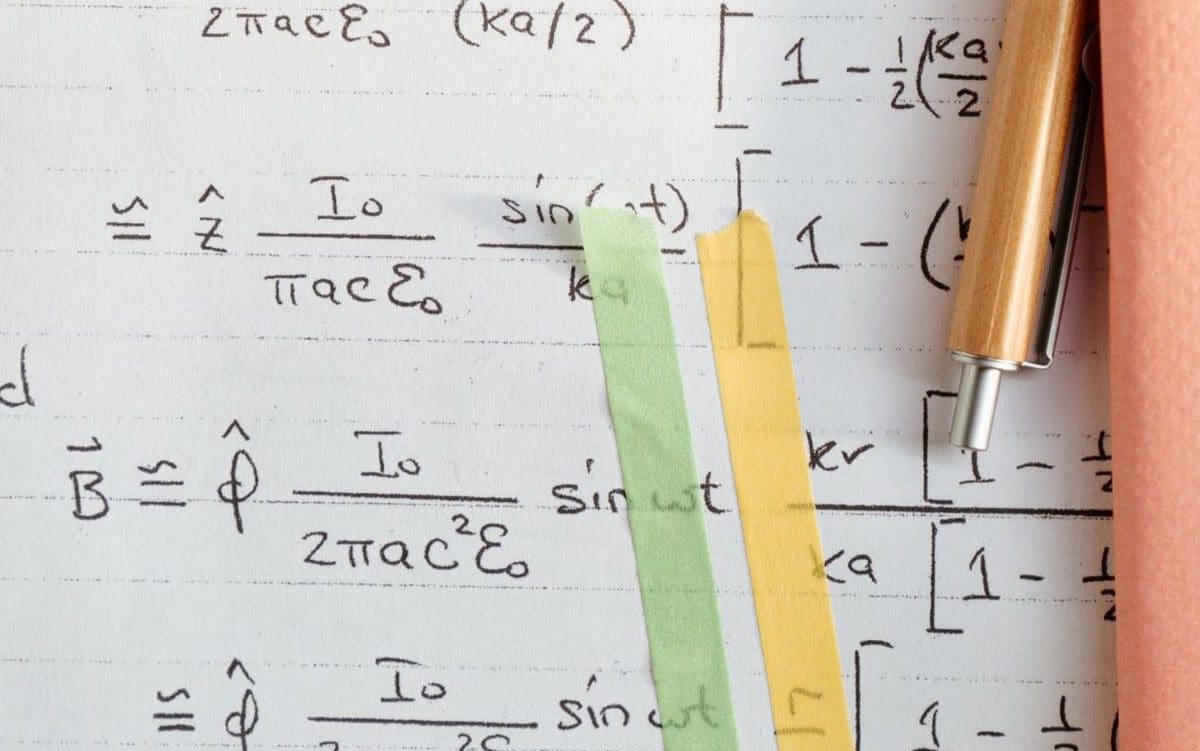 2πacε₀ (ka/2) [ 1 - 1/2 (ka/2
≅ ẑ I₀/πacε₀ sin( t)/ka [ 1 - (
d
B⃗ ≅ φ̂ I₀/2πac²ε₀ sin ωt kr [ 1 - 1/2 / ka [ 1 - 1/2
≅ φ̂ I₀ sin ωt [ 1 - 1